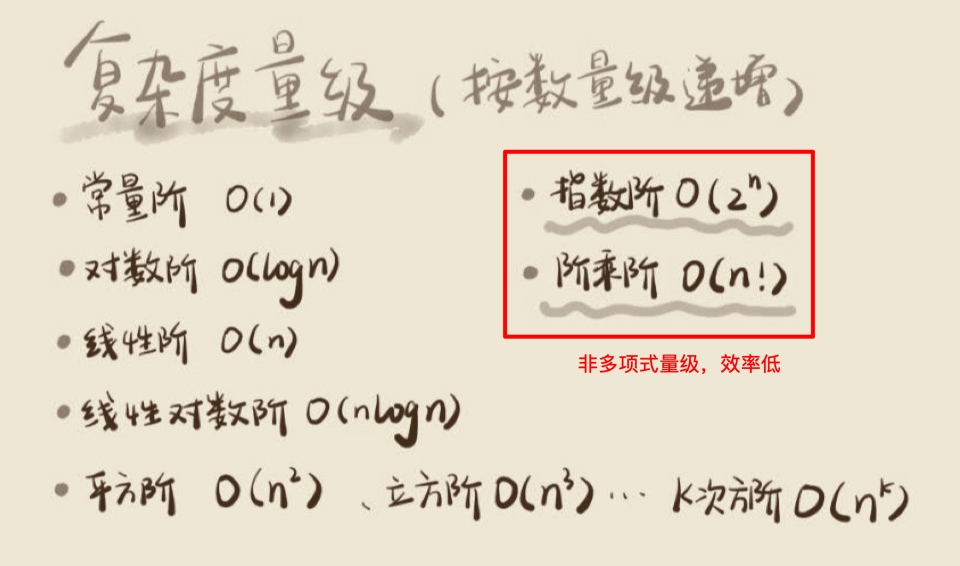 复杂度量级（按数量级递增）
• 常量阶 O(1)
• 对数阶 O(logn)
• 线性阶 O(n)
• 线性对数阶 O(nlogn)
• 平方阶 O(n²)、立方阶 O(n³) ... K次方阶 O(nᵏ)
• 指数阶 O(2ⁿ)
• 阶乘阶 O(n!)
非多项式量级，效率低